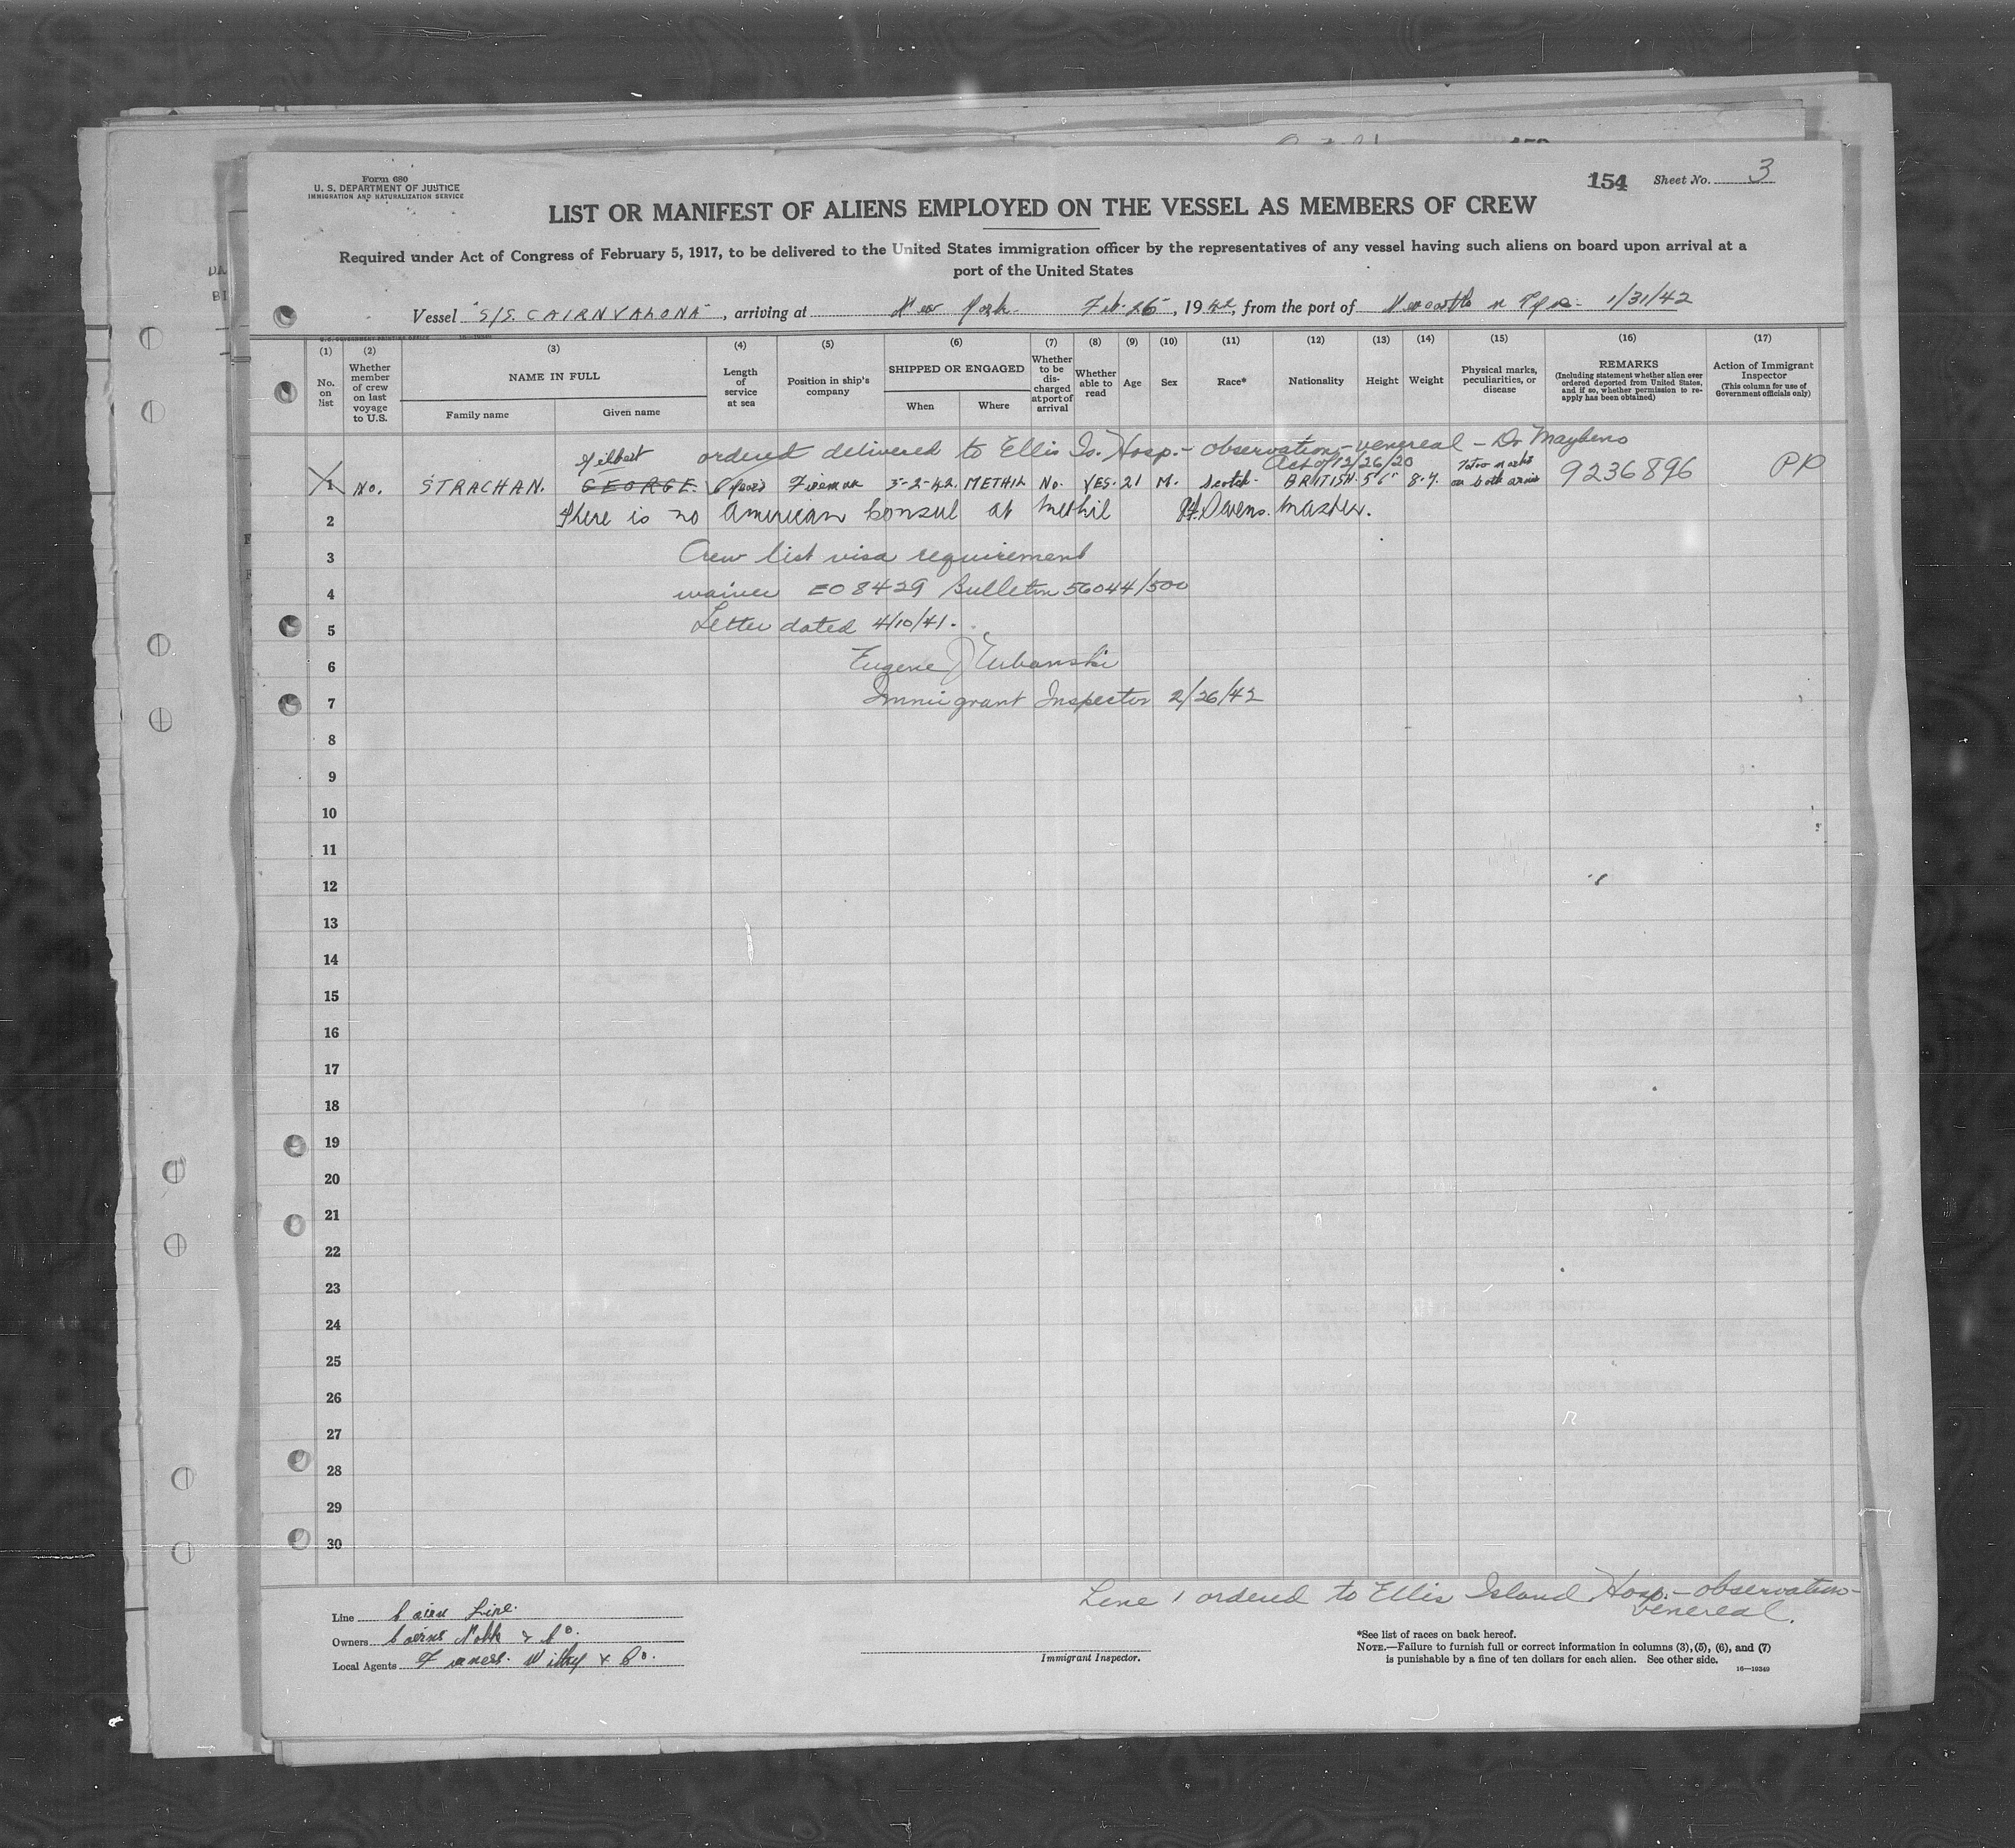 Form 680
U. S. DEPARTMENT OF JUSTICE
IMMIGRATION AND NATURALIZATION SERVICE
154 Sheet No. 3
LIST OR MANIFEST OF ALIENS EMPLOYED ON THE VESSEL AS MEMBERS OF CREW
Required under Act of Congress of February 5, 1917, to be delivered to the United States immigration officer by the representatives of any vessel having such aliens on board upon arrival at a
port of the United States
Vessel "S/S. CAIRNVALONA", arriving at New York. Feb. 26, 1942, from the port of Newcastle n Tyne. 1/31/42
(1) No. on list
(2) Whether member of crew on last voyage to U.S.
(3) NAME IN FULL Family name Given name
(4) Length of service at sea
(5) Position in ship's company
(6) SHIPPED OR ENGAGED When Where
(7) Whether to be discharged at port of arrival
(8) Whether able to read
(9) Age
(10) Sex
(11) Race*
(12) Nationality
(13) Height
(14) Weight
(15) Physical marks, peculiarities, or disease
(16) REMARKS (Including statement whether alien ever ordered deported from United States, and if so, whether permission to reapply has been obtained)
(17) Action of Immigrant Inspector (This column for use of Government officials only)
ordered delivered to Ellis Is. Hosp. - observation - venereal - Dr
Gilbert Act of 12/26/20
1 No. STRACHAN. GEORGE. 6 years Fireman 3-2-42. METHIL No. YES. 21 M. Scotch. BRITISH. 5'6" 8.7. Tatoo marks on both arms 9236896 PP
2 There is no American Consul at Methil Master.
3 Crew list visa requirement
4 waiver EO 8429 Bulletin 56044/500
5 Letter dated 4/10/41.
6 Eugene J
7 Immigrant Inspector 2/26/42
8
9
10
11
12
13
14
15
16
17
18
19
20
21
22
23
24
25
26
27
28
29
30
Line 1 ordered to Ellis Island Hosp. - observation -
venereal.
Line Cairn Line.
Owners Cairns Noble & Co.
Local Agents Furness. Withy & Co.
Immigrant Inspector.
*See list of races on back hereof.
NOTE.—Failure to furnish full or correct information in columns (3), (5), (6), and (7)
is punishable by a fine of ten dollars for each alien. See other side.
16—19349